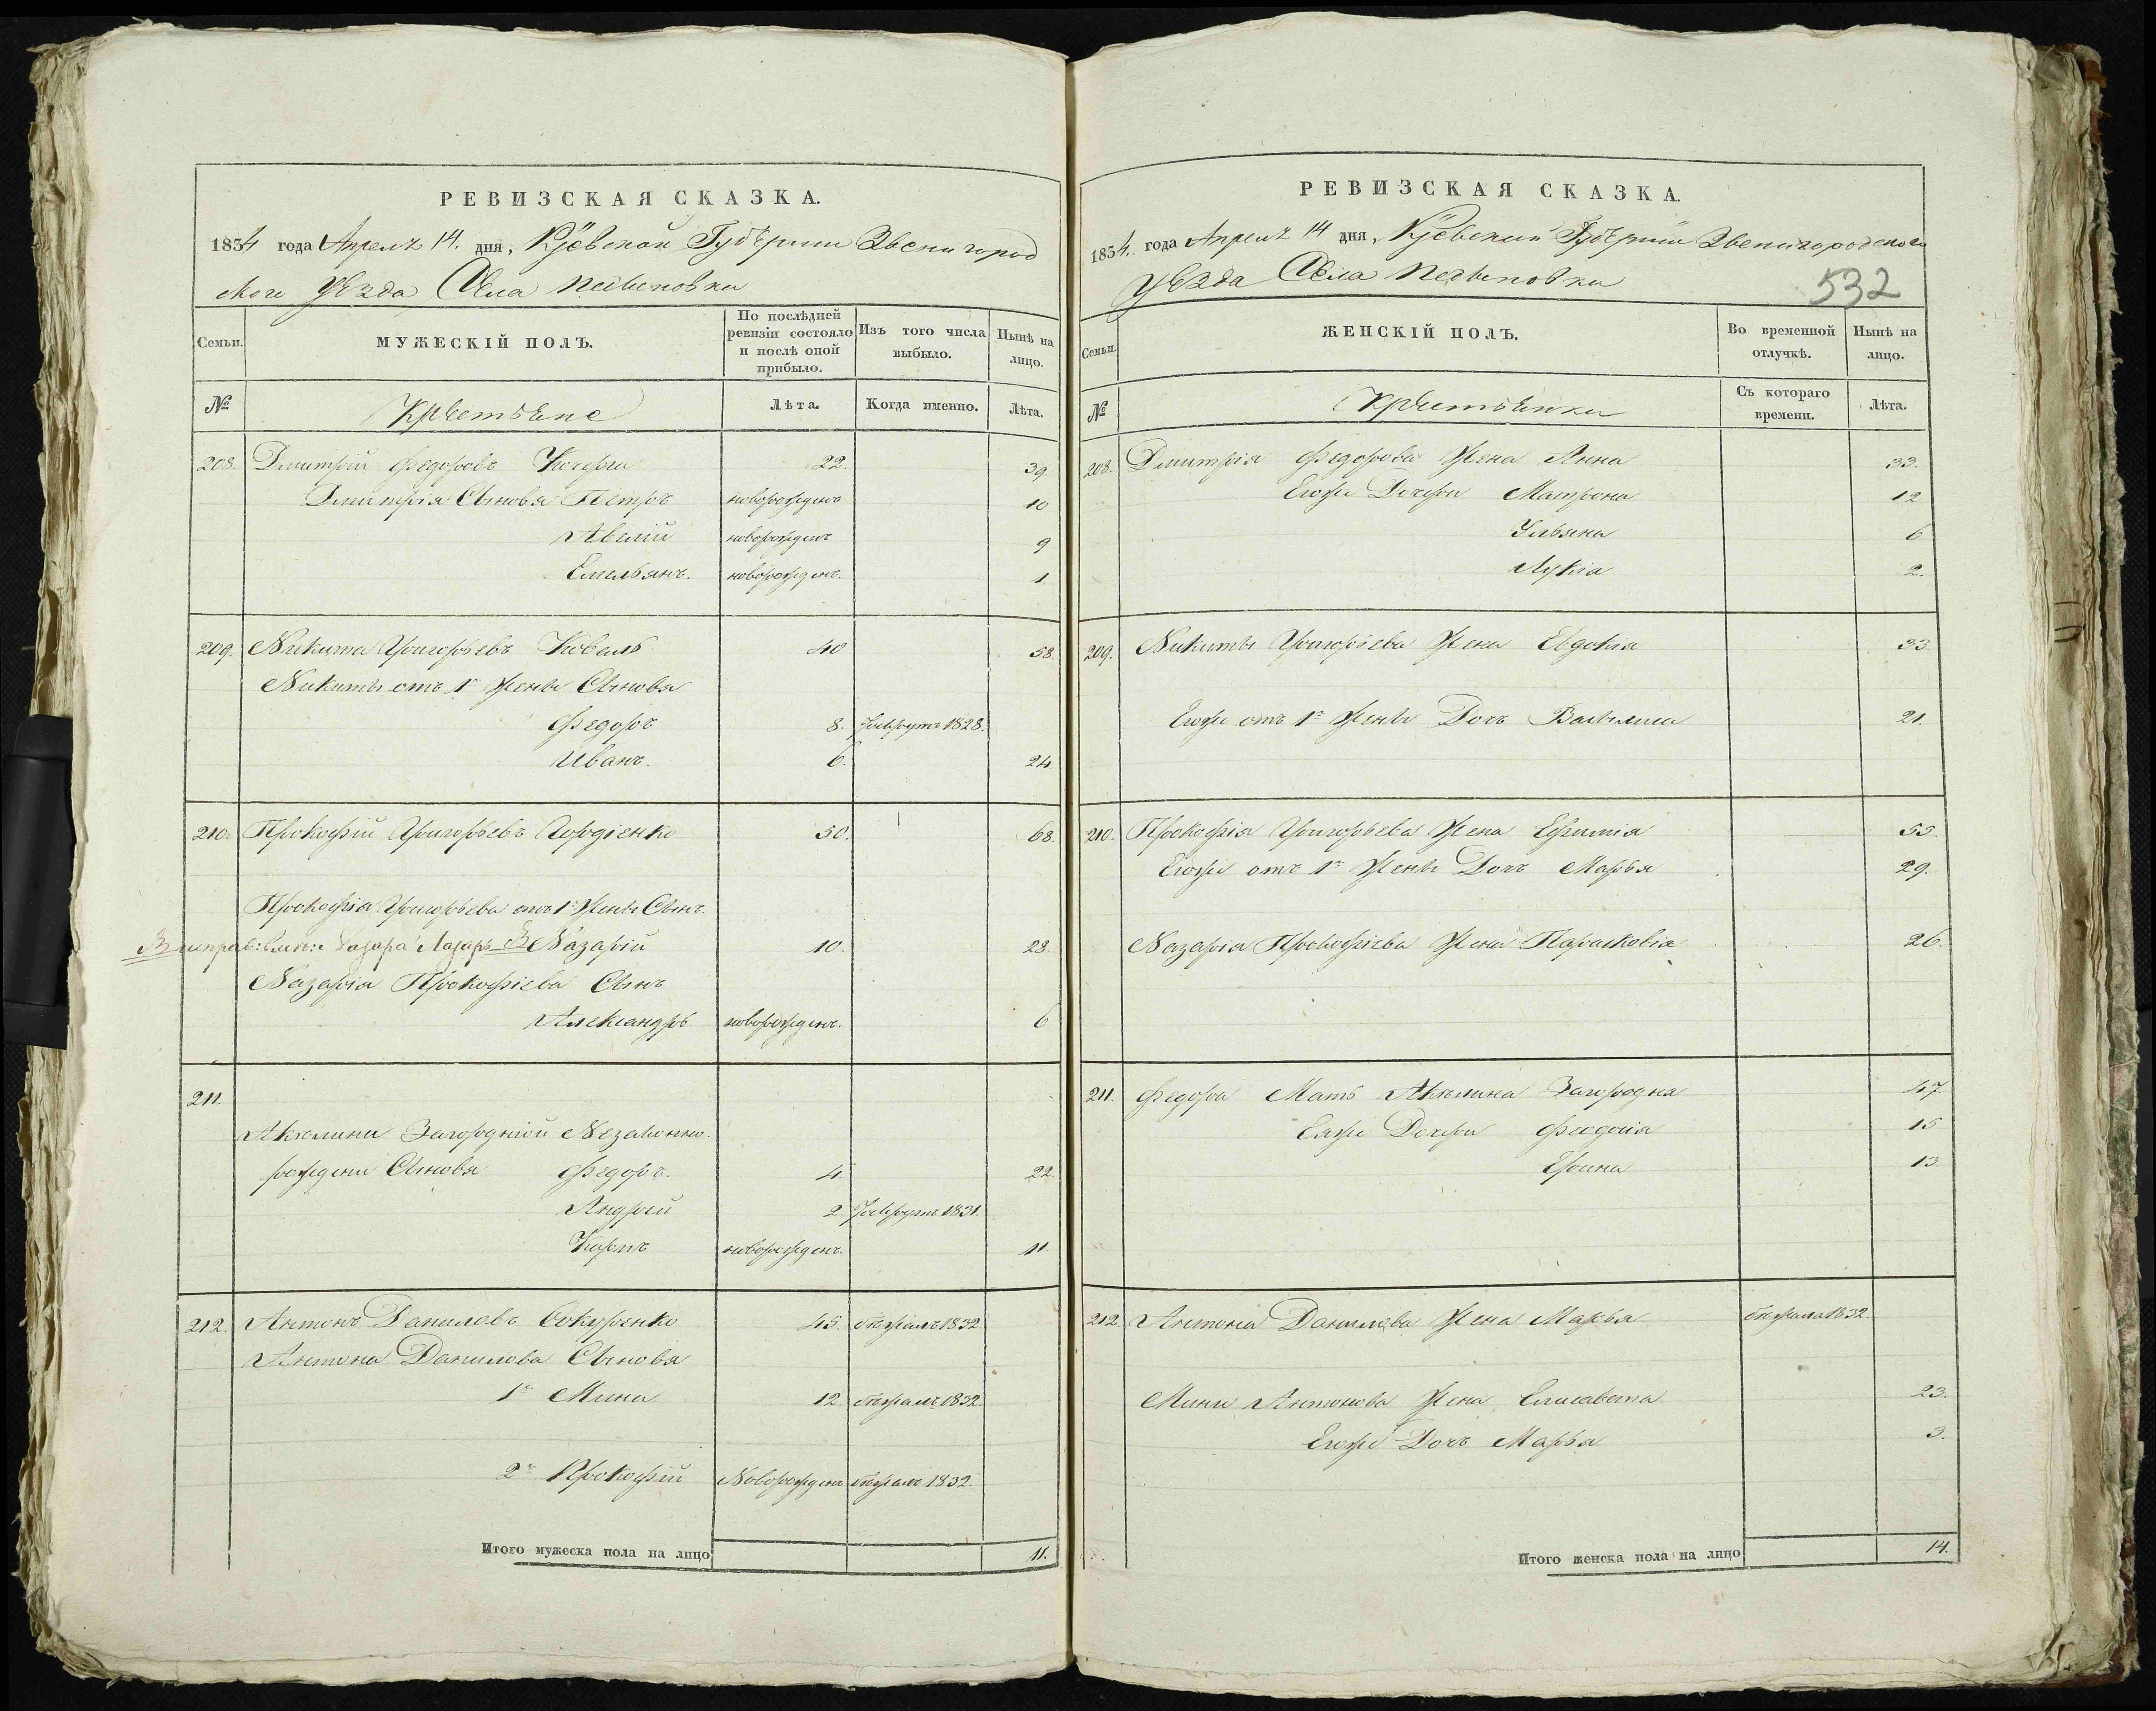 РЕВИЗСКАЯ СКАЗКА.
1834 года Апреля 14. дня, Кіевской Губерніи Звенигород
ского Уезда Села
Семьи.
МУЖЕСКІЙ ПОЛЪ.
По послѣдней ревизіи состояло и послѣ оной прибыло.
Изъ того числа выбыло.
Нынѣ на лицо.
№
Крестьяне
Лѣта.
Когда именно.
Лѣта.
208. Дмитрій Федоровъ Кочерга 22. 39.
Дмитрія Сыновья Петръ новорожденъ 10
Авелій новорожденъ 9
Емельянъ. новорожденъ. 1
209. Никита Григорьевъ Коваль 40 58.
Никиты отъ 1й жены Сыновья
Федоръ 8. Рекрутъ 1828.
Иванъ. 6. 24
210. Прокофій Григорьевъ Гордіенко 50. 68.
Прокофія Григорьева отъ 1й жены Сынъ.
Назарій 10. 28.
Назарія Прокофіева Сынъ
Александръ новорожденъ. 6
211.
Акилины Загородній Незаконно
рождени Сыновья Федоръ. 4. 22.
Андрей 2. Рекрутъ 1831.
Карпъ новорожденъ. 11
212. Антонъ Даниловъ Сокуренко 45. бежалъ 1832
Антона Данилова Сыновья
1й Мина 12. бежалъ 1832.
2й Прокофій Новорожденъ бежалъ 1832.
Итого мужеска пола на лицо 11.
РЕВИЗСКАЯ СКАЗКА.
1834. года Апреля 14 дня, Кіевской Губерніи Звенигородского
Уезда Села
532
Семьи.
ЖЕНСКІЙ ПОЛЪ.
Во временной отлучкѣ.
Нынѣ на лицо.
№
Крестьянки
Съ котораго времени.
Лѣта.
208. Дмитрія Федорова Жена Анна 33.
Егоже Дочери Матрона 12
Ульяна 6
Лукія 2.
209. Никиты Григоріева Жена Евдокія 33.
Егоже отъ 1й жены Дочь Василиса 21.
210. Прокофія Григорьева Жена Ефимія 55.
Егоже отъ 1й Жены Дочь Марья 29.
Назарія Прокофіева Жена Парасковія 26.
211. Федора Мать Акилина Загородня 47.
Еяже Дочери Феодосія 15
Ерина 13.
212. Антона Данилова Жена Марья бежала 1832.
Мины Антонова Жена Елисавета 23.
Егоже Дочь Марья 3.
Итого женска пола на лицо 14.